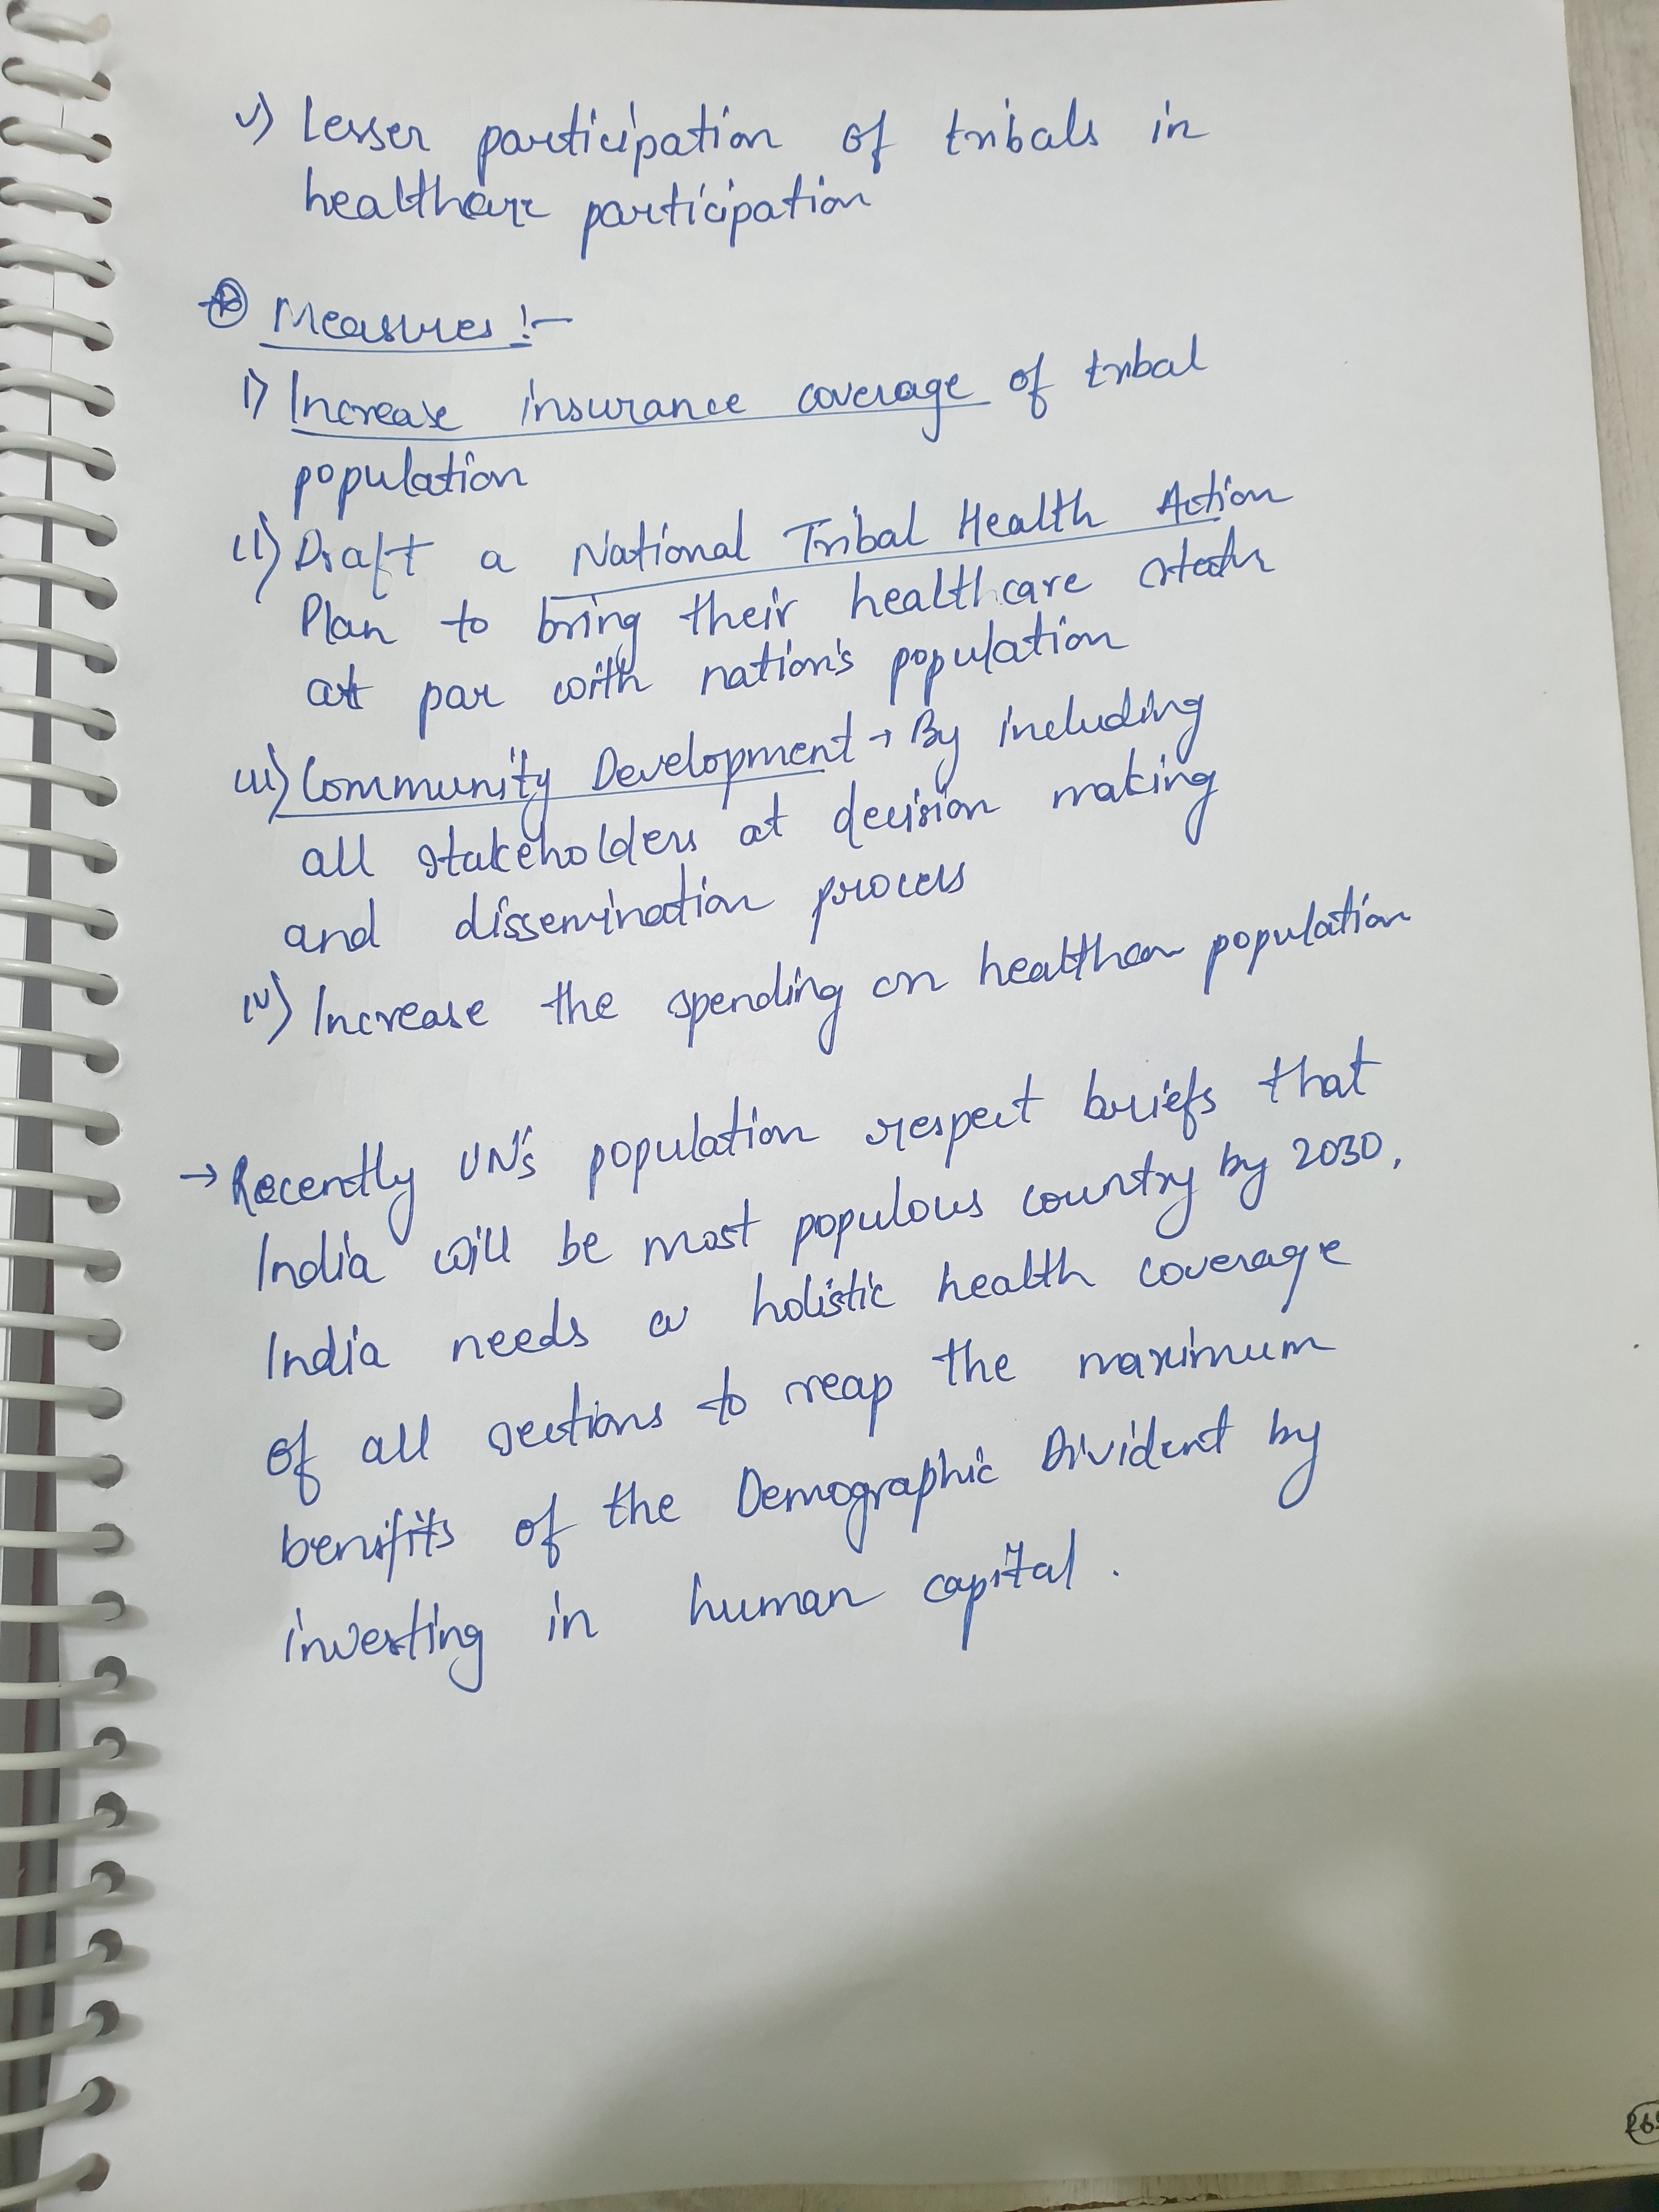 v) Lesser participation of tribals in
healthcare participation
Measures :-
i) Increase insurance coverage of tribal
population
ii) Draft a National Tribal Health Action
Plan to bring their healthcare
at par with nation's population
iii) Community Development → By including
all stakeholders at decision making
and dissemination process
iv) Increase the spending on healthcare population
→ Recently UN's population respect briefs that
India will be most populous country by 2030.
India needs a holistic health coverage
of all sections to reap the maximum
benifits of the Demographic Divident by
investing in human capital.